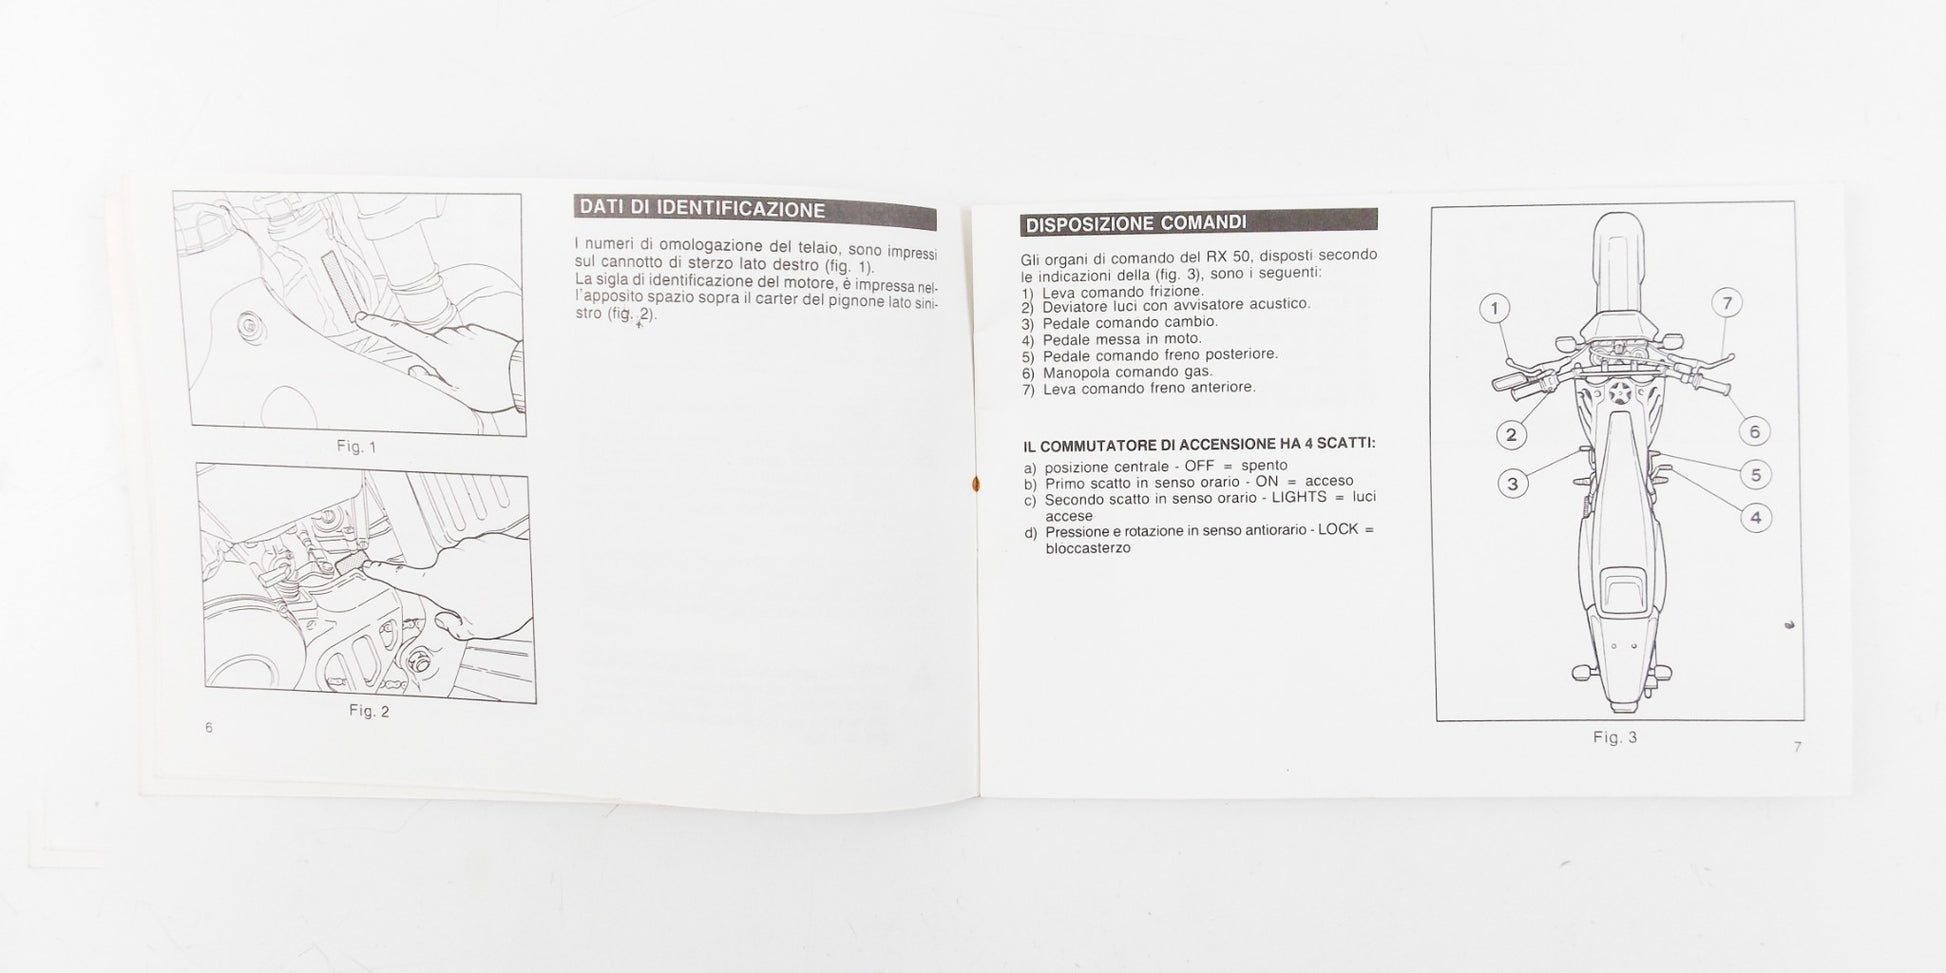 DATI DI IDENTIFICAZIONE
I numeri di omologazione del telaio, sono impressi
sul cannotto di sterzo lato destro (fig. 1).
La sigla di identificazione del motore, è impressa nel-
l'apposito spazio sopra il carter del pignone lato sini-
stro (fig. 2).
Fig. 1
Fig. 2
6
DISPOSIZIONE COMANDI
Gli organi di comando del RX 50, disposti secondo
le indicazioni della (fig. 3), sono i seguenti:
1) Leva comando frizione.
2) Deviatore luci con avvisatore acustico.
3) Pedale comando cambio.
4) Pedale messa in moto.
5) Pedale comando freno posteriore.
6) Manopola comando gas.
7) Leva comando freno anteriore.
IL COMMUTATORE DI ACCENSIONE HA 4 SCATTI:
a) posizione centrale - OFF = spento
b) Primo scatto in senso orario - ON = acceso
c) Secondo scatto in senso orario - LIGHTS = luci
accese
d) Pressione e rotazione in senso antiorario - LOCK =
bloccasterzo
1
7
2
6
3
5
4
Fig. 3
7